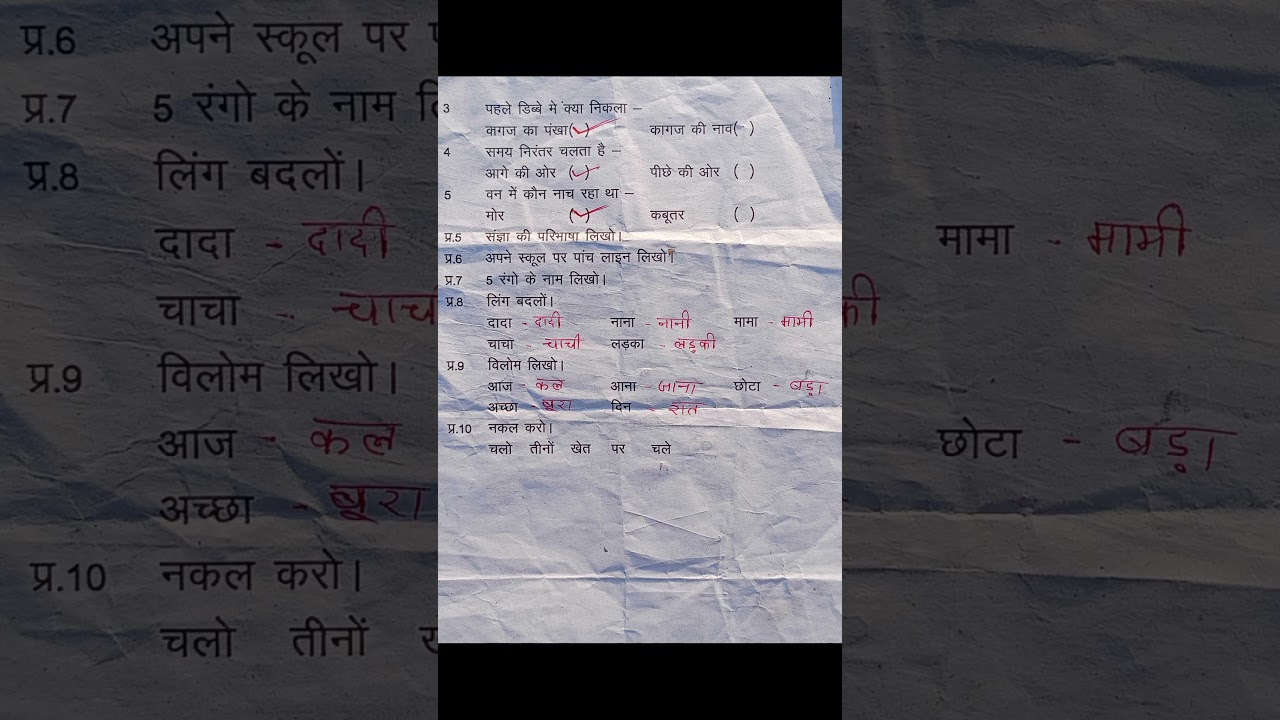 3 पहले डिब्बे मे क्या निकला –
कागज का पंखा(✓) कागज की नाव( )
4 समय निरंतर चलता है –
आगे की ओर (✓) पीछे की ओर ( )
5 वन में कौन नाच रहा था –
मोर (✓) कबूतर ( )
प्र.5 संज्ञा की परिभाषा लिखो।
प्र.6 अपने स्कूल पर पांच लाइन लिखो।
प्र.7 5 रंगो के नाम लिखो।
प्र.8 लिंग बदलों।
दादा - दादी नाना - नानी मामा - मामी
चाचा - चाची लड़का - लड़की
प्र.9 विलोम लिखो।
आज - कल आना - जाना छोटा - बड़ा
अच्छा - बूरा दिन - रात
प्र.10 नकल करो।
चलो तीनों खेत पर चले